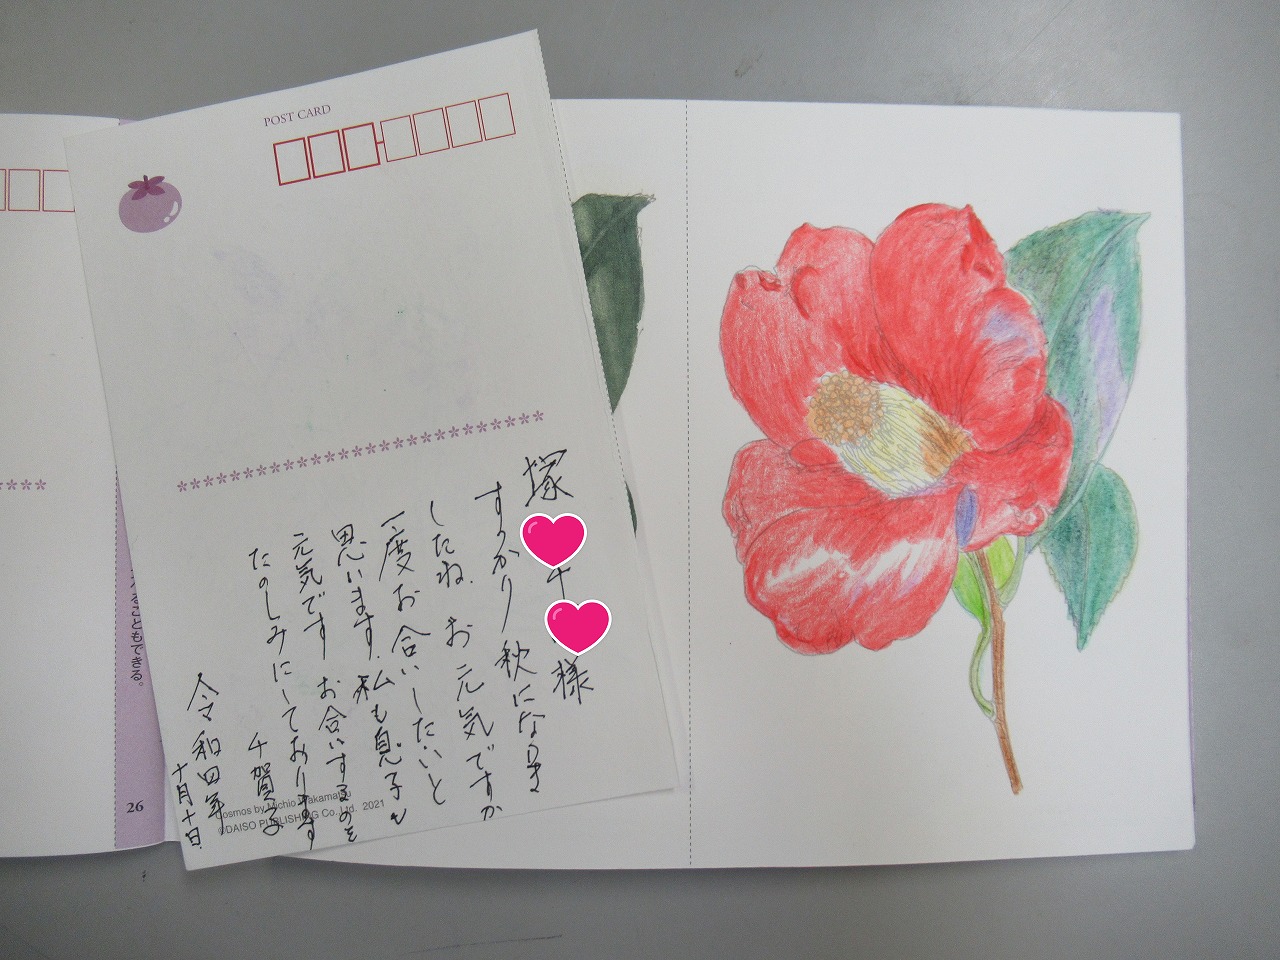 POST CARD
塚
様
すっかり秋になりま
したね。お元気ですか
一度お合いしたいと
思います。私も息子も
元気です お合いするのを
たのしみにしております
千賀子
令和四年
十月十日
Cosmos by Michio Wakamatsu
©DAISO PUBLISHING Co., Ltd. 2021
こともできる。
26